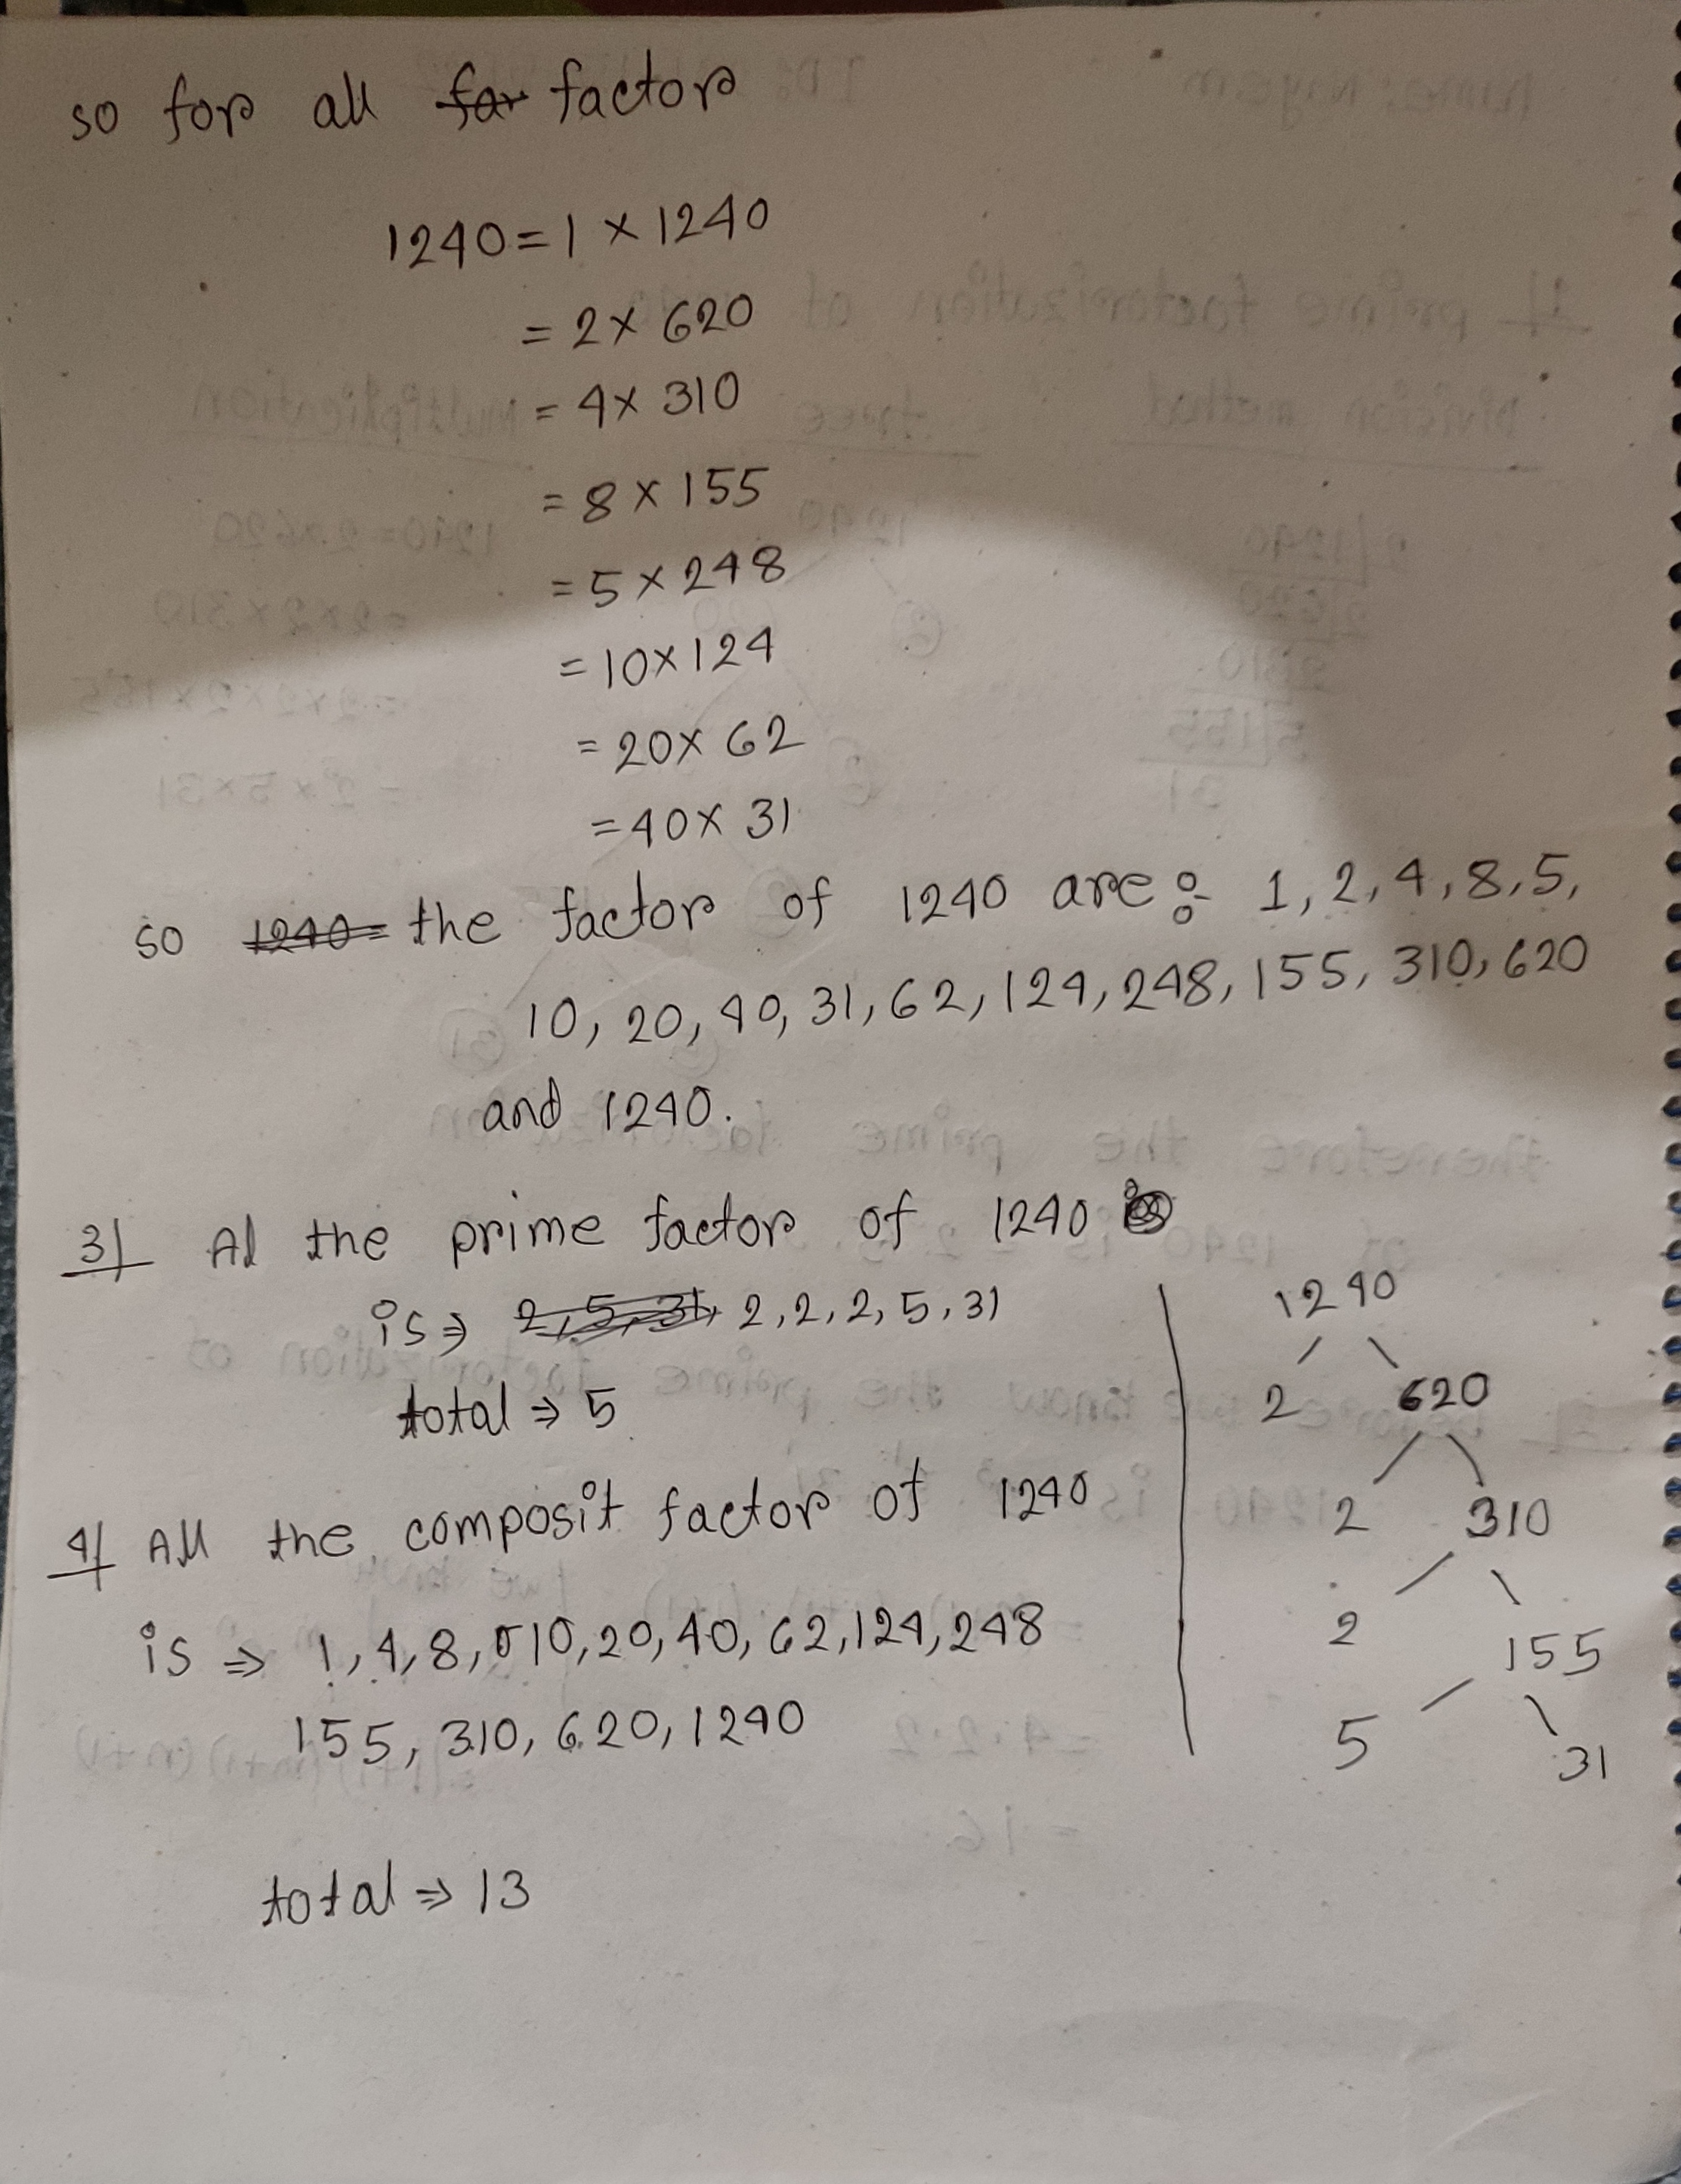 so for all far factor
1240 = 1 × 1240
= 2 × 620
= 4 × 310
= 8 × 155
= 5 × 248
= 10 × 124
= 20 × 62
= 40 × 31
so 1240 = the factor of 1240 are : 1, 2, 4, 8, 5,
10, 20, 40, 31, 62, 124, 248, 155, 310, 620
and 1240.
3/ Al the prime factor of 1240
is ⇒ 2, 5, 31, 2, 2, 2, 5, 31
total ⇒ 5
4/ All the composit factor of 1240
is ⇒ 1, 4, 8, 10, 20, 40, 62, 124, 248
155, 310, 620, 1240
total ⇒ 13
1240
2 620
2 310
2 155
5 31